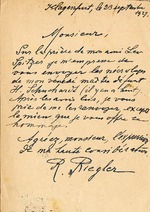 Klagenfurt, le 23 septembre
1927.
Monsieur,
Sur la prière de mon ami Leo
Spitzer je m'empresse de
vous envoyer les nécrologes
de mon vénéré maître defunt
H. Schuchardt
Après les avoir lus, je vous
prie de me les renvoyer, excepté
le mieux que je vous offre en
hommage.
Agréez monsieur, l'expression
de ma haute considération
R. Riegler